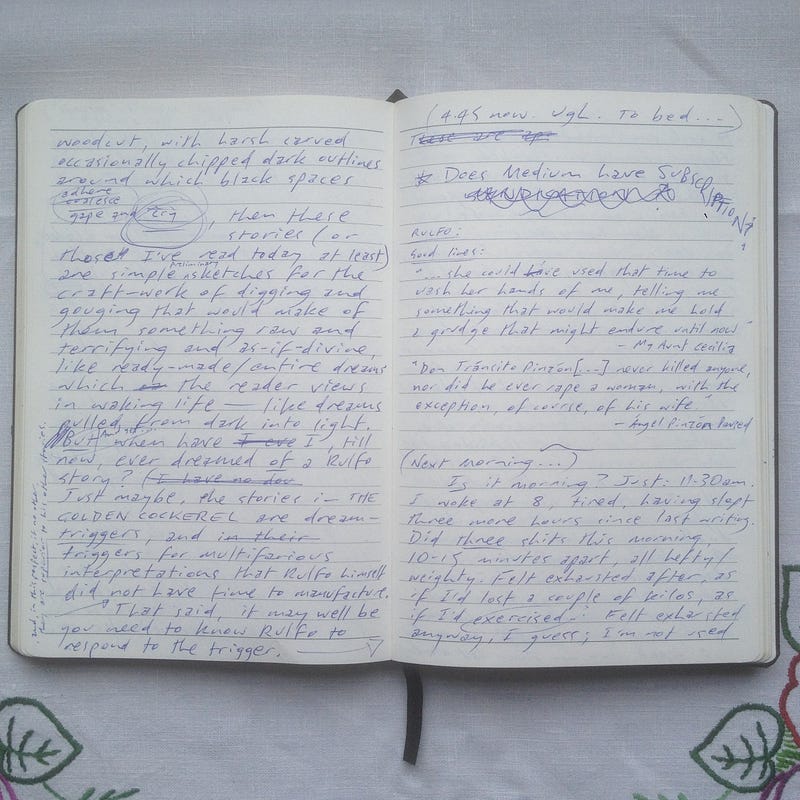 woodcut, with harsh carved
occasionally chipped dark outlines
around which black spaces
adhere
coalesce
gape and
, then these
stories (or
those I've read today at least)
preliminary
are simple sketches for the
craft-work of digging and
gouging that would make of
them something raw and
terrifying and as-if-divine,
like ready-made/entire dreams
which the reader views
in waking life — like dreams
pulled from dark into light.
But when have I eve I, till
now, ever dreamed of a Rulfo
story? (I have no dou
Just maybe, the stories in THE
GOLDEN COCKEREL are dream-
triggers, and in their
triggers for multifarious
interpretations that Rulfo himself
did not have time to manufacture.
That said, it may well be
you need to know Rulfo to
respond to the trigger.
and, in this respect, is no other
to his other stories.
(4.45 now. Ugh. To bed...)
These are ap
* Does Medium have SUBSCRIPTIONS?
RULFO:
Good lines:
"...she could have used that time to
wash her hands of me, telling me
something that would make me hold
a grudge that might endure until now"
- My Aunt Cecilia
"Don Tránsito Pinzón [...] never killed anyone,
nor did he ever rape a woman, with the
exception, of course, of his wife"
- Ángel Pinzón Paused
(Next Morning...)
Is it morning? Just: 11.30am.
I woke at 8, tired, having slept
three more hours since last writing.
Did three shits this morning
10-15 minutes apart, all hefty/
weighty. Felt exhausted after, as
if I'd lost a couple of kilos, as
if I'd exercised. Felt exhausted
anyway, I guess; I'm not used